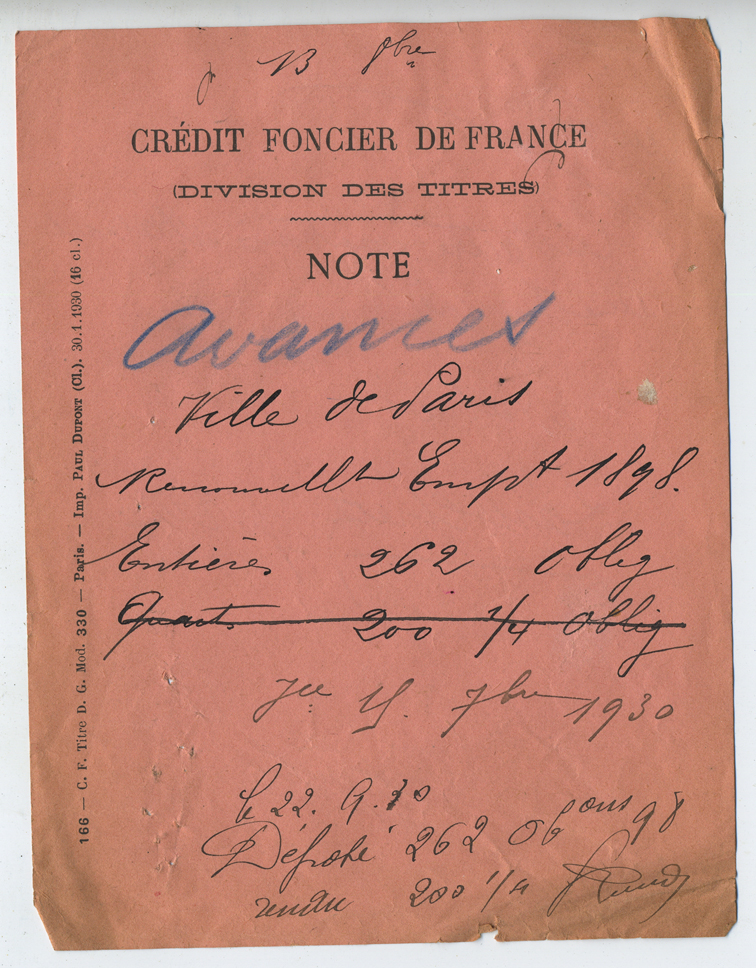 13 8bre
CRÉDIT FONCIER DE FRANCE
(DIVISION DES TITRES)
NOTE
Avances
Ville de Paris
Renouvellt Empt 1898.
Entières 262 oblig
Quarts 200 1/4 oblig
Jce 15 7bre 1930
le 22.9.30
Déposé 262 Obons 98
rendu 200 1/4
166 — C. F. Titre D. G. Mod. 330 — Paris. — Imp. PAUL DUPONT (Cl.). 30.1.1930 (16 cl.)